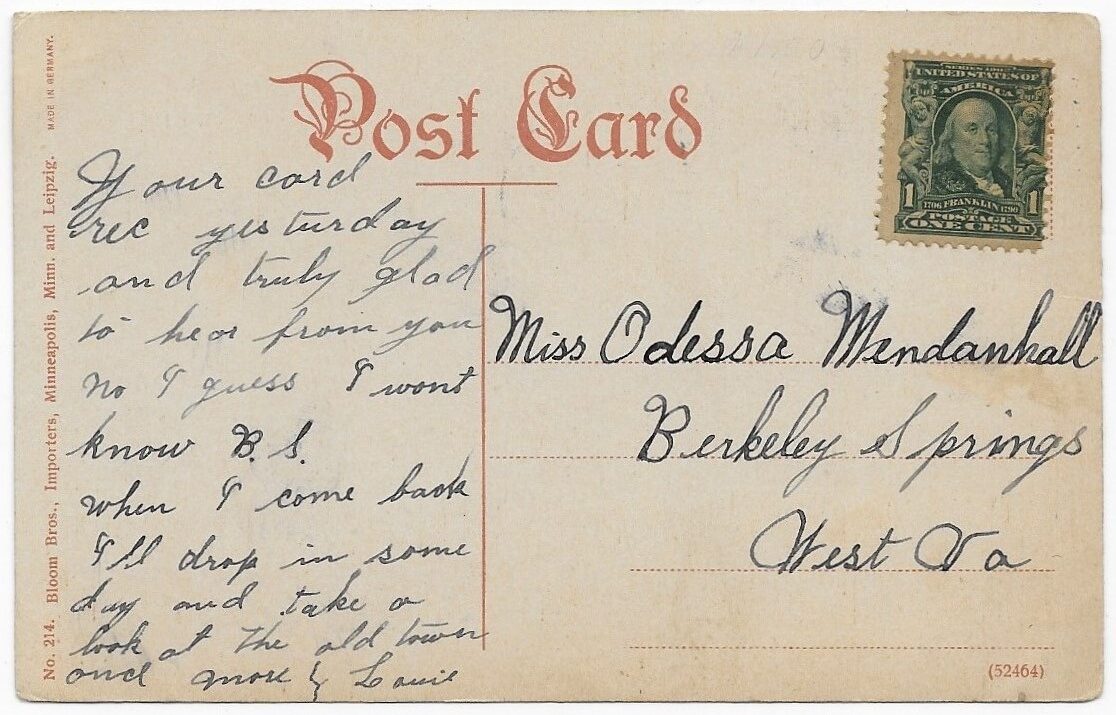 Post Card
MADE IN GERMANY.
No. 214. Bloom Bros., Importers, Minneapolis, Minn. and Leipzig.
UNITED STATES OF
AMERICA
1 1
1706 FRANKLIN 1790
POSTAGE
ONE CENT
Your card
rec yesturday
and truly glad
to hear from you
no I guess I wont
know B. S.
when I come back
I'll drop in some
day and take a
look at the old town
and more
Miss Odessa Mendanhall
Berkeley Springs
West Va
(52464)